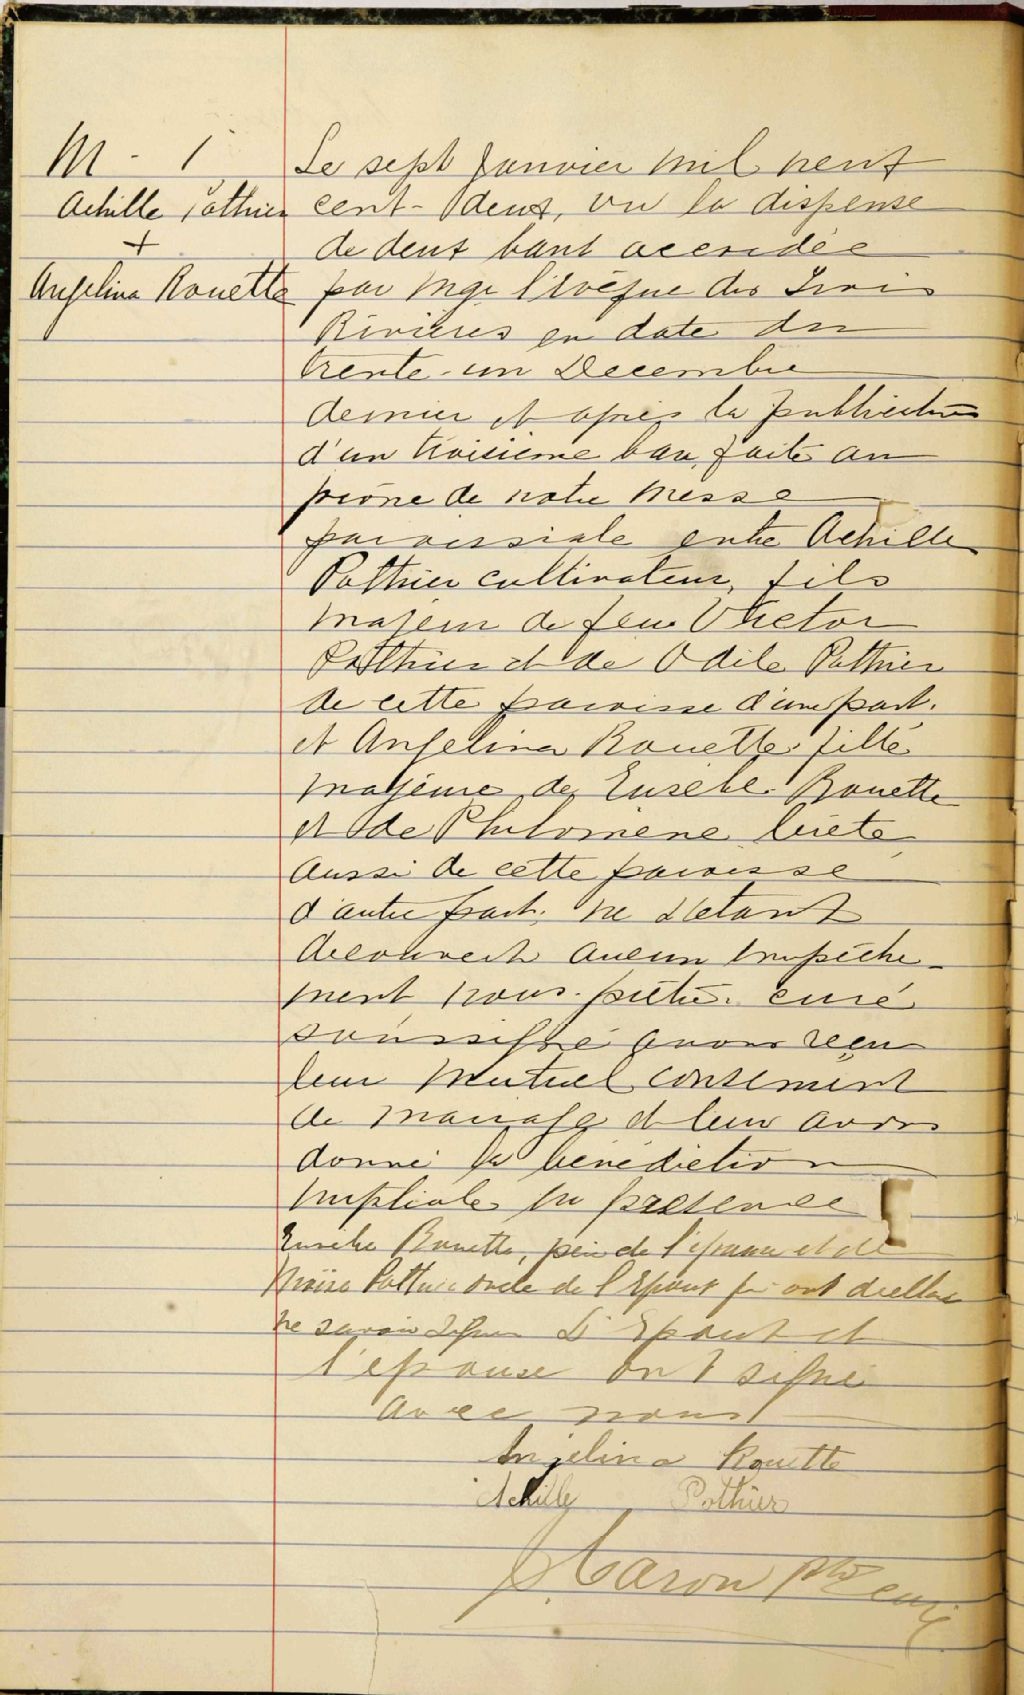 M - 1
Achille Pothier
+
Angelina Rouette
Le sept Janvier mil neuf
cent-deux, vu la dispense
de deux bans accordée
par Mgr l'Evêque des Trois
Rivières en date du
trente-un Decembre
dernier et après la publication
d'un troisième ban, faite au
prône de notre Messe
paroissiale entre Achille
Pothier cultivateur, fils
majeur de feu Victor
Pothier et de Odile Pothier
de cette paroisse d'une part.
et Angelina Rouette fille
majeure de Eusèbe Rouette
et de Philomène
aussi de cette paroisse
d'autre part. ne s'etant
decouvert aucun empêche-
ment nous prêtre curé
soussigné avons reçu
leur mutuel consement
de mariage et leur avons
donné la bénédiction
nuptiale en presence
Eusèbe Rouette, père de l'épouse et de
Pothier oncle de l'Epoux qui ont declaré
ne savoir signer L'Epoux et
l'epouse ont signé
avec nous
Angelina Rouette
Achille Pothier
Caron Ptre curé